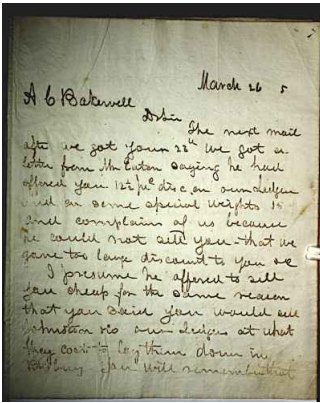 March 26 5
A C Bakewell
Dr Sir
The next mail
after we got yours 23rd We got a
letter from Mr Eaton saying he had
offered you 12½ disc on
and on some special weights 15
and complains of us because
he could not sell you - that we
gave too large discount to you &c
I presume he offered to sell
you cheap for the same reason
that you said you would sell
Johnston at what
they cost to lay them down in
you will remember that